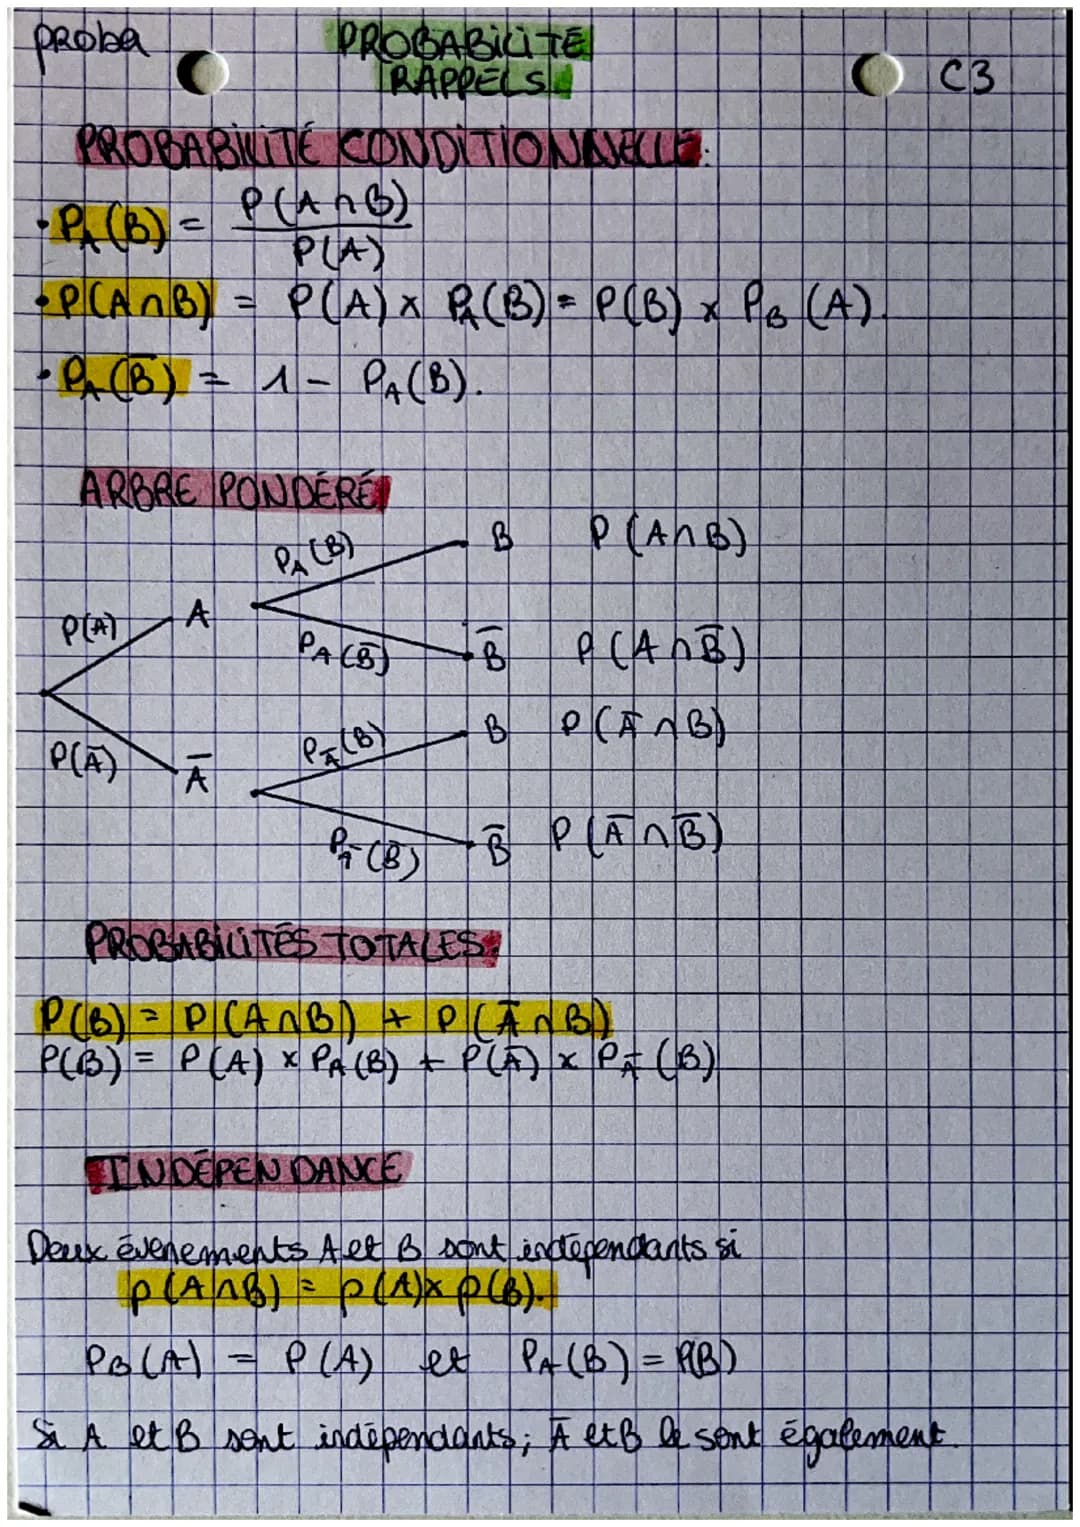 proba
PROBABILITÉ
RAPPELS
C3
PROBABILITÉ CONDITIONNELLE:
• P_A(B) = P(A∩B) / P(A)
• P(A∩B) = P(A) × P_A(B) = P(B) × P_B(A).
• P_A(B̅) = 1 - P_A(B).
ARBRE PONDÉRÉ
P_A(B) B P(A∩B)
P(A) A
P_A(B̅) B̅ P(A∩B̅)
P_A̅(B) B P(A̅∩B)
P(A̅) A̅
P_A̅(B̅) B̅ P(A̅∩B̅)
PROBABILITÉS TOTALES:
P(B) = P(A∩B) + P(A̅∩B)
P(B) = P(A) × P_A(B) + P(A̅) × P_A̅(B)
INDÉPENDANCE
Deux évenements A et B sont indépendants si
p(A∩B) = p(A) × p(B).
P_B(A) = P(A) et P_A(B) = P(B)
Si A et B sont indépendants; A̅ et B le sont également.